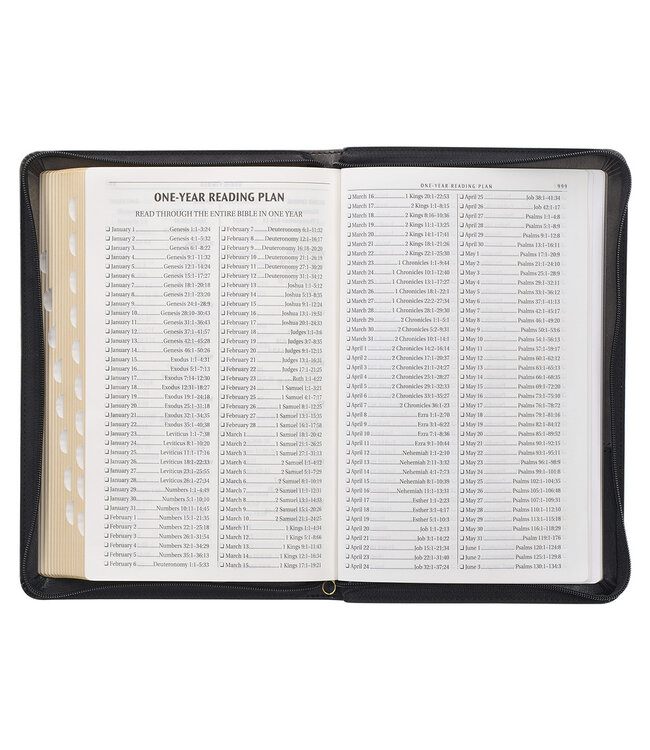 ONE-YEAR READING PLAN
READ THROUGH THE ENTIRE BIBLE IN ONE YEAR
January 1 Genesis 1:1-3:24
January 2 Genesis 4:1-5:32
January 3 Genesis 6:1-8:22
January 4 Genesis 9:1-11:32
January 5 Genesis 12:1-14:24
January 6 Genesis 15:1-17:27
January 7 Genesis 18:1-20:18
January 8 Genesis 21:1-23:20
January 9 Genesis 24:1-28:9
January 10 Genesis 28:10-30:43
January 11 Genesis 31:1-36:43
January 12 Genesis 37:1-41:57
January 13 Genesis 42:1-45:28
January 14 Genesis 46:1-50:26
January 15 Exodus 1:1-4:31
January 16 Exodus 5:1-7:13
January 17 Exodus 7:14-12:30
January 18 Exodus 12:31-18:27
January 19 Exodus 19:1-24:18
January 20 Exodus 25:1-31:18
January 21 Exodus 32:1-34:35
January 22 Exodus 35:1-40:38
January 23 Leviticus 1:1-7:38
January 24 Leviticus 8:1-10:20
January 25 Leviticus 11:1-17:16
January 26 Leviticus 18:1-22:33
January 27 Leviticus 23:1-25:55
January 28 Leviticus 26:1-27:34
January 29 Numbers 1:1-4:49
January 30 Numbers 5:1-10:10
January 31 Numbers 10:11-14:45
February 1 Numbers 15:1-21:35
February 2 Numbers 22:1-25:18
February 3 Numbers 26:1-31:54
February 4 Numbers 32:1-34:29
February 5 Numbers 35:1-36:13
February 6 Deuteronomy 1:1-5:33
February 7 Deuteronomy 6:1-11:32
February 8 Deuteronomy 12:1-16:17
February 9 Deuteronomy 16:18-20:20
February 10 Deuteronomy 21:1-26:19
February 11 Deuteronomy 27:1-30:20
February 12 Deuteronomy 31:1-34:12
February 13 Joshua 1:1-5:12
February 14 Joshua 5:13-8:35
February 15 Joshua 9:1-12:24
February 16 Joshua 13:1-19:51
February 17 Joshua 20:1-24:33
February 18 Judges 1:1-3:6
February 19 Judges 3:7-8:35
February 20 Judges 9:1-12:15
February 21 Judges 13:1-16:31
February 22 Judges 17:1-21:25
February 23 Ruth 1:1-4:22
February 24 1 Samuel 1:1-3:21
February 25 1 Samuel 4:1-7:17
February 26 1 Samuel 8:1-12:25
February 27 1 Samuel 13:1-15:35
February 28 1 Samuel 16:1-17:58
March 1 1 Samuel 18:1-20:42
March 2 1 Samuel 21:1-26:25
March 3 1 Samuel 27:1-31:13
March 4 2 Samuel 1:1-4:12
March 5 2 Samuel 5:1-7:29
March 6 2 Samuel 8:1-10:19
March 7 2 Samuel 11:1-12:31
March 8 2 Samuel 13:1-14:33
March 9 2 Samuel 15:1-20:26
March 10 2 Samuel 21:1-24:25
March 11 1 Kings 1:1-4:34
March 12 1 Kings 5:1-8:66
March 13 1 Kings 9:1-11:43
March 14 1 Kings 12:1-16:34
March 15 1 Kings 17:1-19:21
ONE-YEAR READING PLAN 999
March 16 1 Kings 20:1-22:53
March 17 2 Kings 1:1-8:15
March 18 2 Kings 8:16-10:36
March 19 2 Kings 11:1-13:25
March 20 2 Kings 14:1-17:41
March 21 2 Kings 18:1-21:26
March 22 2 Kings 22:1-25:30
March 23 1 Chronicles 1:1-9:44
March 24 1 Chronicles 10:1-12:40
March 25 1 Chronicles 13:1-17:27
March 26 1 Chronicles 18:1-22:1
March 27 1 Chronicles 22:2-27:34
March 28 1 Chronicles 28:1-29:30
March 29 2 Chronicles 1:1-5:1
March 30 2 Chronicles 5:2-9:31
March 31 2 Chronicles 10:1-14:1
April 1 2 Chronicles 14:2-16:14
April 2 2 Chronicles 17:1-20:37
April 3 2 Chronicles 21:1-24:27
April 4 2 Chronicles 25:1-28:27
April 5 2 Chronicles 29:1-32:33
April 6 2 Chronicles 33:1-35:27
April 7 2 Chronicles 36:1-23
April 8 Ezra 1:1-2:70
April 9 Ezra 3:1-6:22
April 10 Ezra 7:1-8:36
April 11 Ezra 9:1-10:44
April 12 Nehemiah 1:1-2:10
April 13 Nehemiah 2:11-3:32
April 14 Nehemiah 4:1-7:73
April 15 Nehemiah 8:1-10:39
April 16 Nehemiah 11:1-13:31
April 17 Esther 1:1-2:23
April 18 Esther 3:1-4:17
April 19 Esther 5:1-10:3
April 20 Job 1:1-2:13
April 21 Job 3:1-14:22
April 22 Job 15:1-21:34
April 23 Job 22:1-31:40
April 24 Job 32:1-37:24
April 25 Job 38:1-41:34
April 26 Job 42:1-17
April 27 Psalms 1:1-4:8
April 28 Psalms 5:1-8:9
April 29 Psalms 9:1-12:8
April 30 Psalms 13:1-16:11
May 1 Psalms 17:1-20:9
May 2 Psalms 21:1-24:10
May 3 Psalms 25:1-28:9
May 4 Psalms 29:1-32:11
May 5 Psalms 33:1-36:12
May 6 Psalms 37:1-41:13
May 7 Psalms 42:1-45:17
May 8 Psalms 46:1-49:20
May 9 Psalms 50:1-53:6
May 10 Psalms 54:1-56:13
May 11 Psalms 57:1-59:17
May 12 Psalms 60:1-62:12
May 13 Psalms 63:1-65:13
May 14 Psalms 66:1-68:35
May 15 Psalms 69:1-72:20
May 16 Psalms 73:1-75:10
May 17 Psalms 76:1-78:72
May 18 Psalms 79:1-81:16
May 19 Psalms 82:1-84:12
May 20 Psalms 85:1-89:52
May 21 Psalms 90:1-92:15
May 22 Psalms 93:1-95:11
May 23 Psalms 96:1-98:9
May 24 Psalms 99:1-101:8
May 25 Psalms 102:1-104:35
May 26 Psalms 105:1-106:48
May 27 Psalms 107:1-109:31
May 28 Psalms 110:1-112:10
May 29 Psalms 113:1-115:18
May 30 Psalms 116:1-118:29
May 31 Psalms 119:1-176
June 1 Psalms 120:1-124:8
June 2 Psalms 125:1-129:8
June 3 Psalms 130:1-134:3